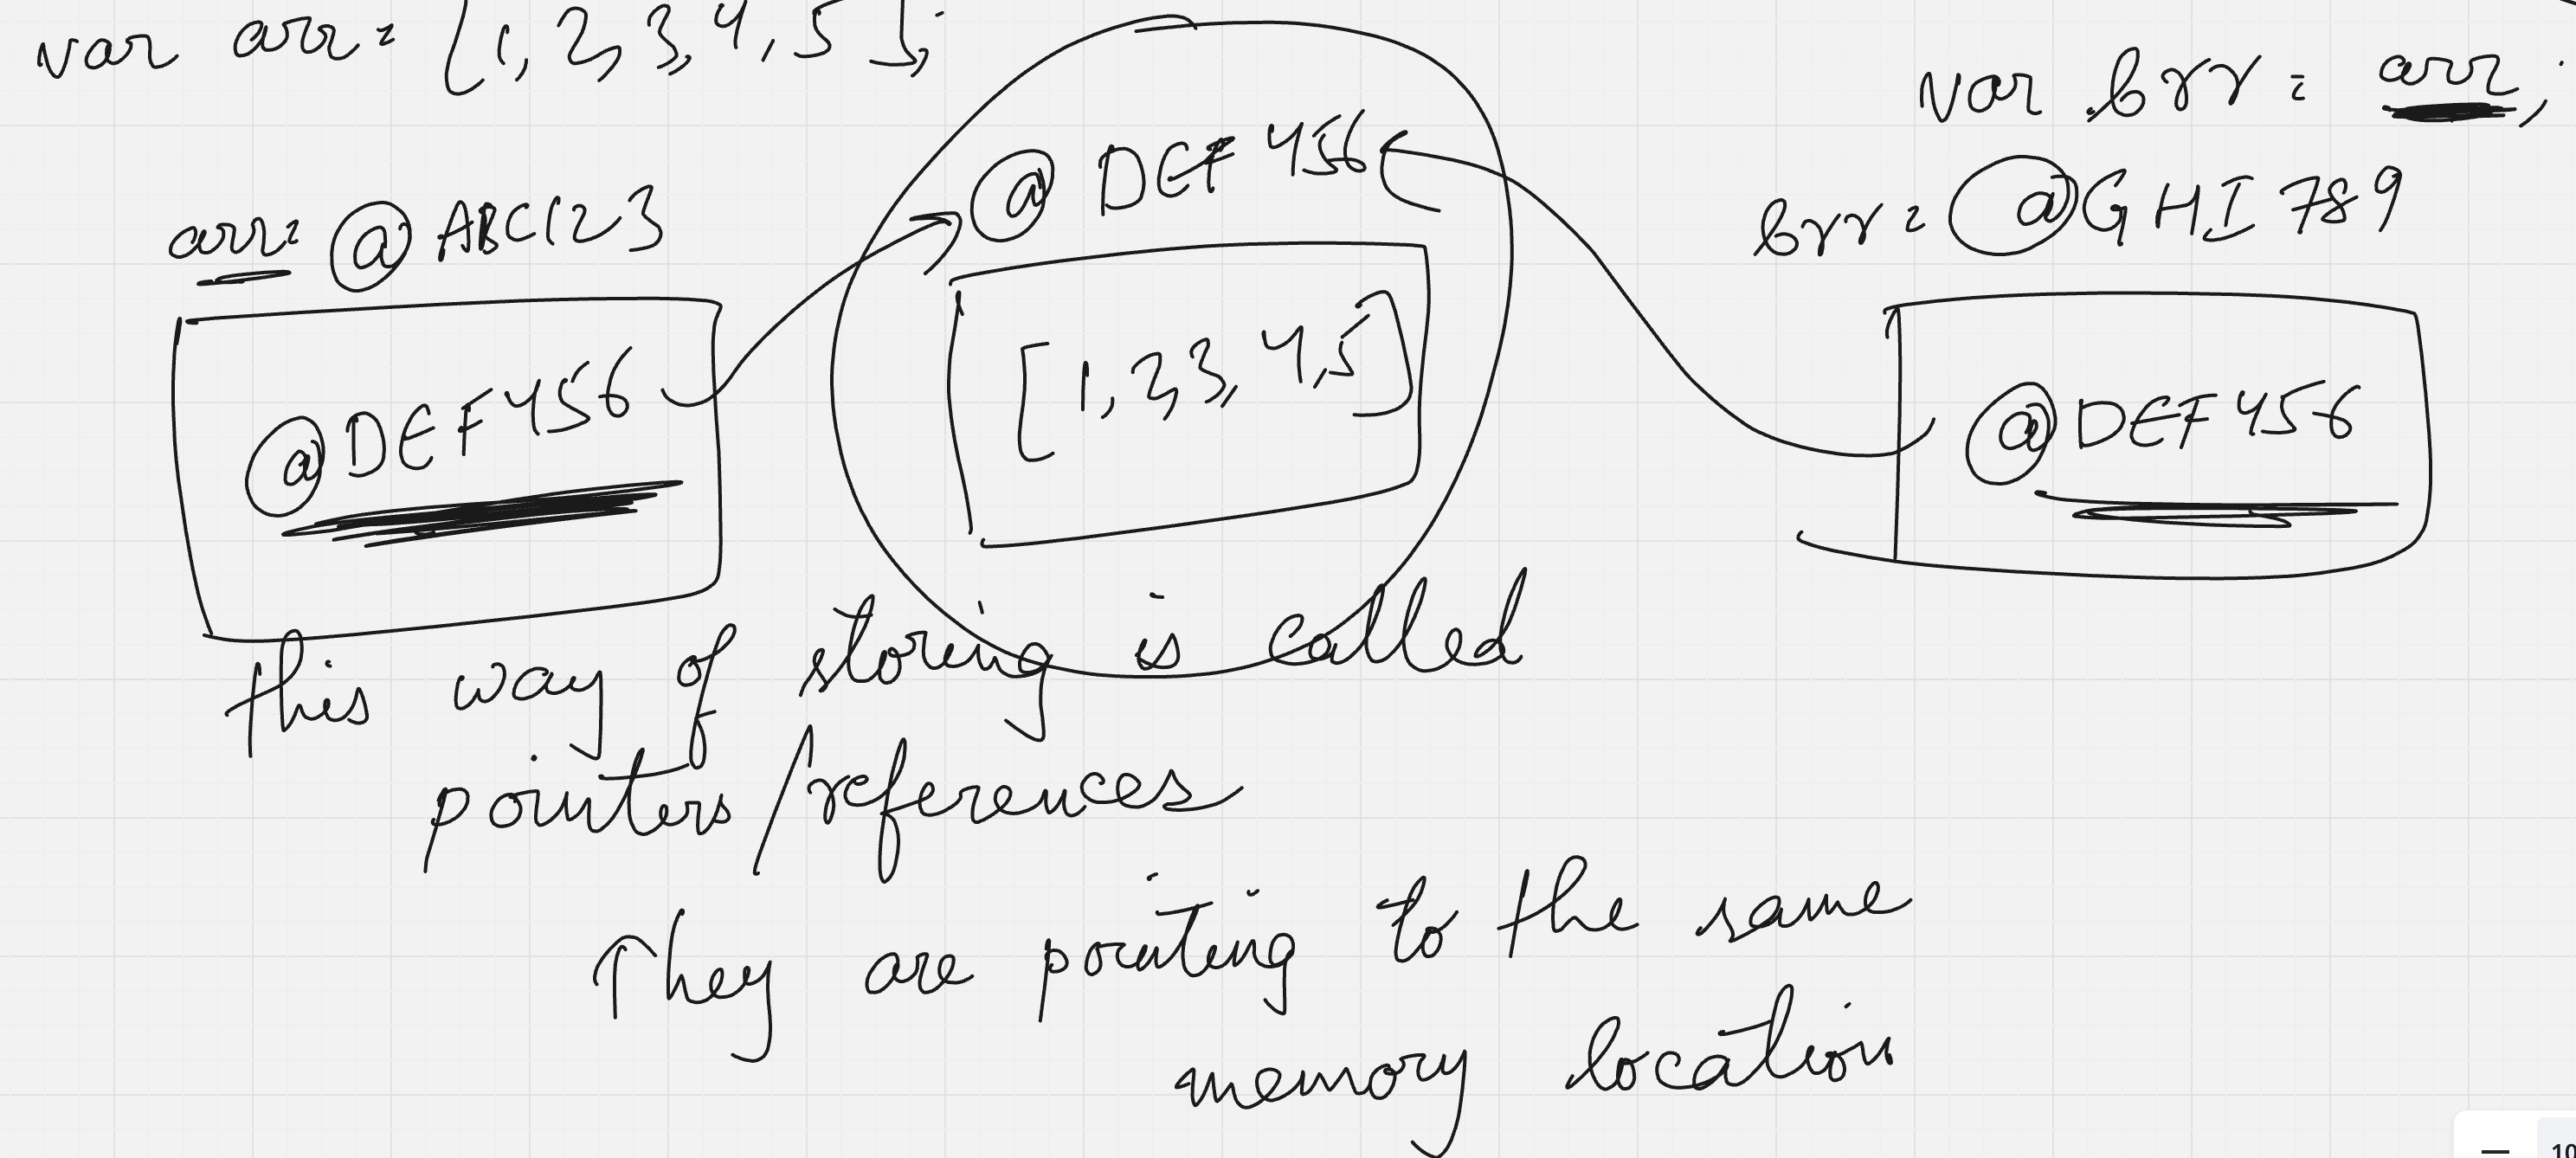 var arr = [1, 2, 3, 4, 5];
var brr = arr;
arr = @ABC123
@DEF456
brr = @GHI789
@DEF456
[1, 2, 3, 4, 5]
@DEF456
this way of storing is called
pointers/references
They are pointing to the same
memory location
10